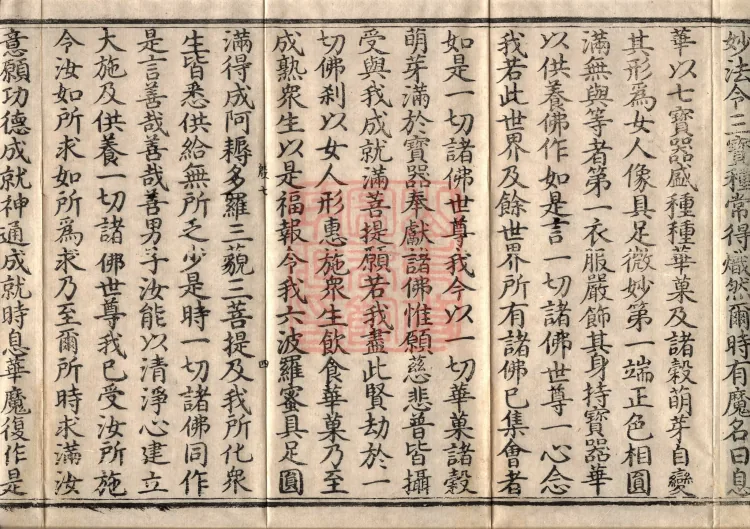 妙法令三寶種常得熾然爾時有魔名曰息
華以七寶器盛種種華菓及諸穀萌芽自變
其形爲女人像具足微妙第一端正色相圓
滿無與等者第一衣服嚴飾其身持寶器華
以供養佛作如是言一切諸佛世尊一心念
我若此世界及餘世界所有諸佛已集會者
如是一切諸佛世尊我今以一切華菓諸穀
萌芽滿於寶器奉獻諸佛惟願慈悲普皆攝
受與我成就滿菩提願若我盡此賢劫於一
切佛刹以女人形惠施衆生飲食華菓乃至
成熟衆生以是福報令我六波羅蜜具足圓
滿得成阿耨多羅三藐三菩提及我所化衆
生皆悉供給無所乏少是時一切諸佛同作
是言善哉善哉善男子汝能以清淨心建立
大施及供養一切諸佛世尊我已受汝所施
令汝如所求如所爲求乃至爾所時求滿汝
意願功德成就神通成就時息華魔復作是
七
四